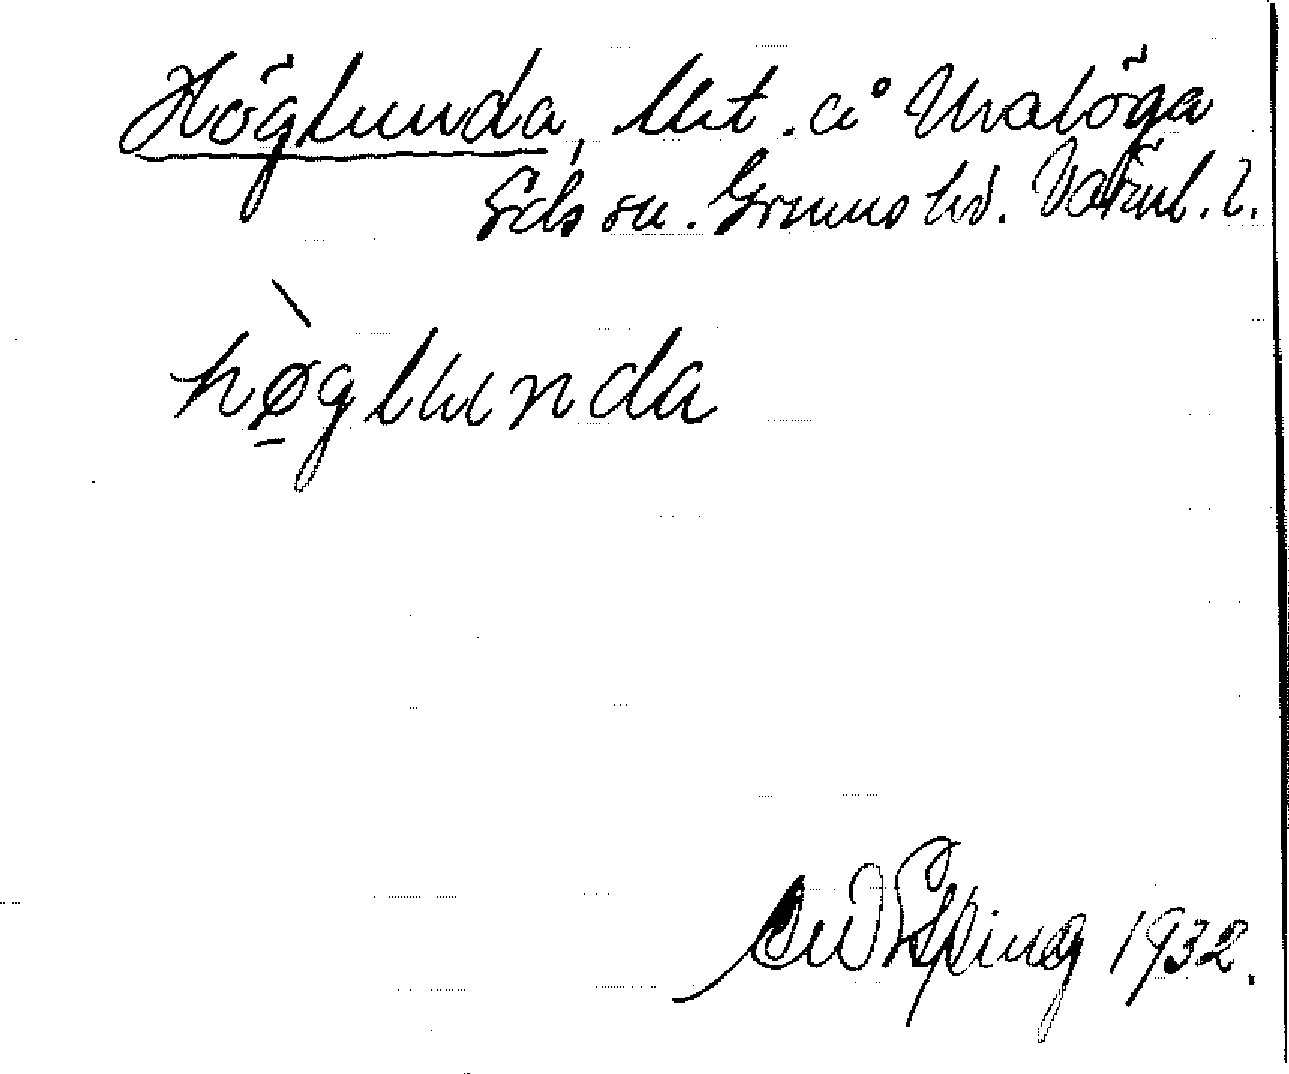 Höglunda, lht. å Uvalöga
Eds sn. Grums hd. Värml. l.
høglunda
1932.